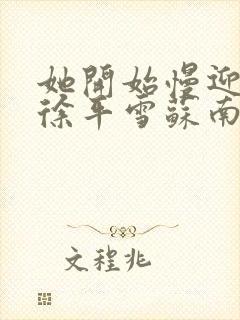 她開始慢迎
徐平雪蘇南
文程兆